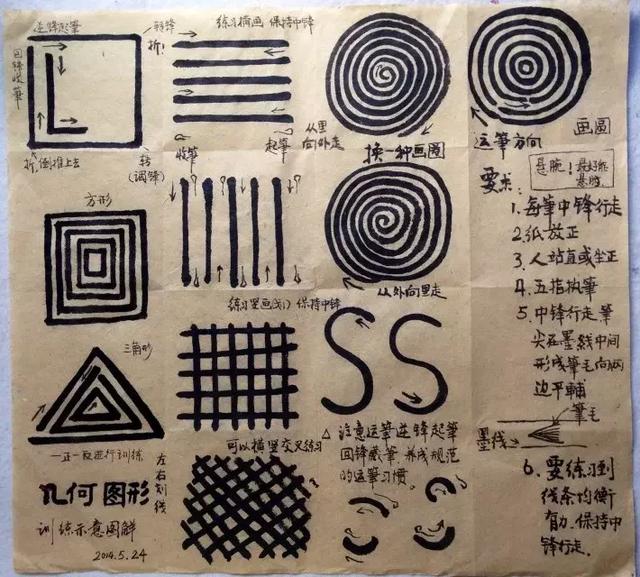 逆锋起筆
转锋
折!
回锋收筆
折,倒推上去
转
(调锋)
练习横画 保持中锋
收筆
起筆
从里
向外走
换一种画圈
运筆方向
画圆
悬腕!最好能
悬肘。
要求:
1. 每筆中锋行走
2. 纸放正
3. 人站直或坐正
4. 五指执筆
5. 中锋行走筆
尖在墨线中间
形成筆毛向两
边平铺
筆毛
墨线
6. 要练习到
线条均衡
有力.保持中
锋行走.
方形
练习竖画(划) 保持中锋
从外向里走
三角形
一正一反进行训练
可以横竖交叉练习
左右划线
△ 注意运筆逆锋起筆
回锋藏筆 养成规范
的运筆习惯。
几何图形
训练示意图解
2014.5.24